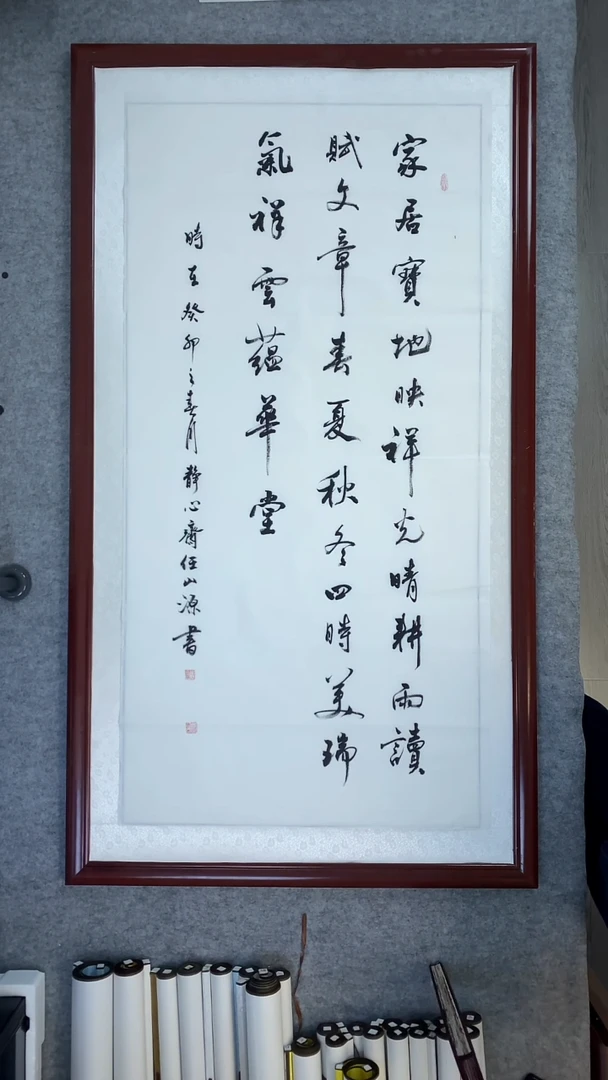 家居寶地映祥光晴耕雨讀
賦文章春夏秋冬四時美瑞
氣祥雲蘊華堂
時在癸卯之春月靜心齋任山源書